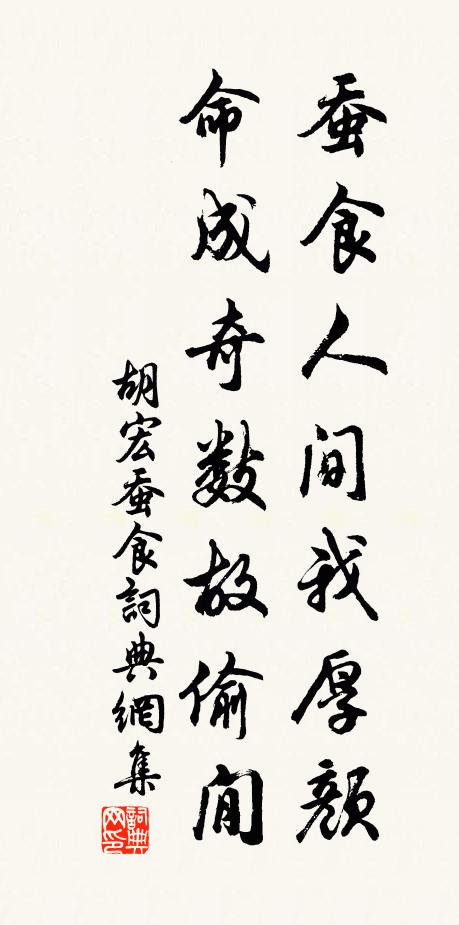 蚕食人間我厚顔
命成奇数故偷閒
胡宏蚕食詞典網集
詞典网印